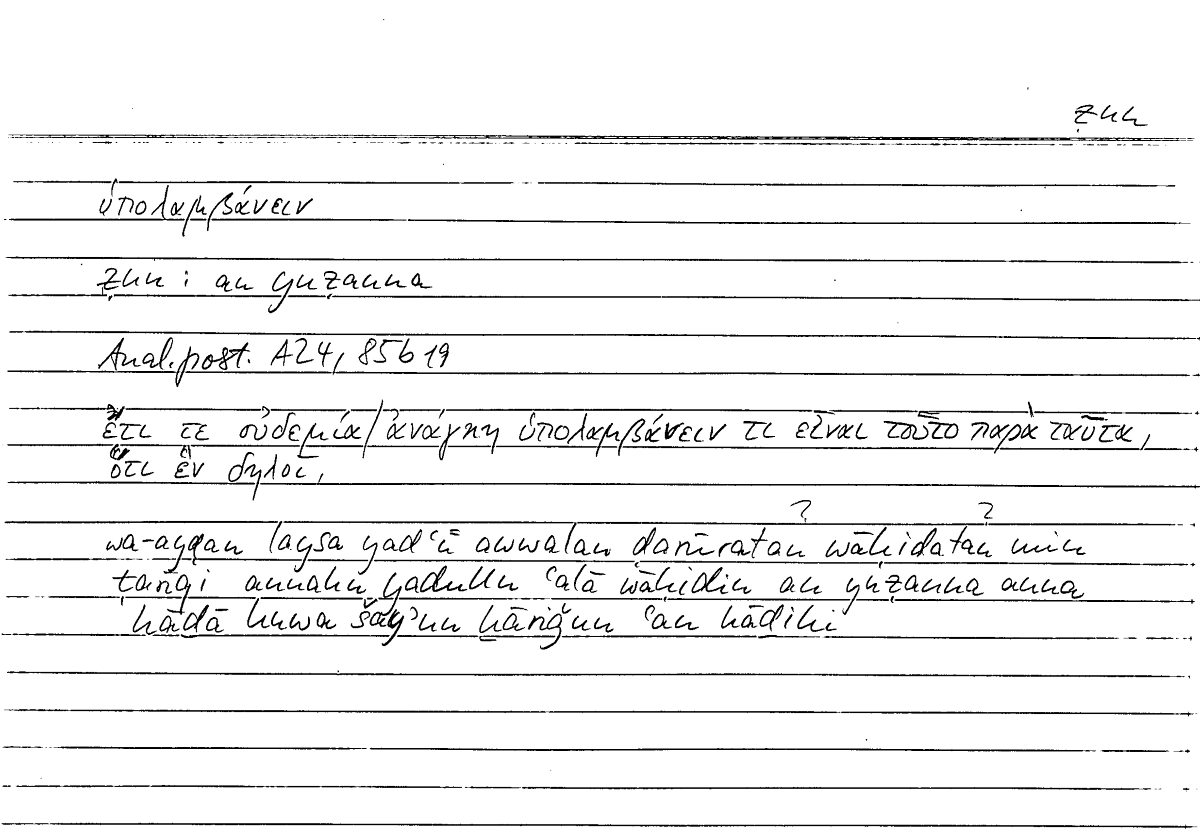 ẓnn
ὑπολαμβάνειν
ẓnn : an yuẓanna
Anal. post. A24, 85b19
ἔτι τε οὐδεμία/ἀνάγκη ὑπολαμβάνειν τι εἶναι τοῦτο παρὰ ταῦτα,
ὅτι ἓν δηλοῖ,
? ?
wa-ayḍan laysa yadʿū awwalan ḍarūratan wāḥidatan min
ṭarīqi annahu yadullu ʿalā wāḥidin an yuẓanna anna
hāḏā huwa šayʾun ḫāriǧun ʿan hāḏihi